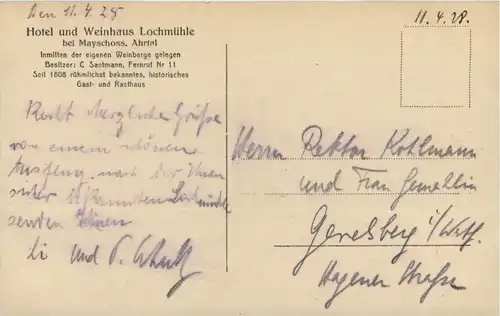 Den 11.4.28
Hotel und Weinhaus Lochmühle
bei Mayschoss, Ahrtal
Inmitten der eigenen Weinberge gelegen
Besitzer: C Sastmann, Fernruf Nr 11
Seit 1808 rühmlichst bekanntes, historisches
Gast- und Rasthaus
Recht herzliche Grüße
von einem schönen
Ausflug nach der Ihnen
sicher bekannten Lochmühle
senden Ihnen
und
11.4.28.
Herrn Rektor Kohlmann
und Frau Gemahlin
Gevelsberg i/Westf.
Hagener Straße